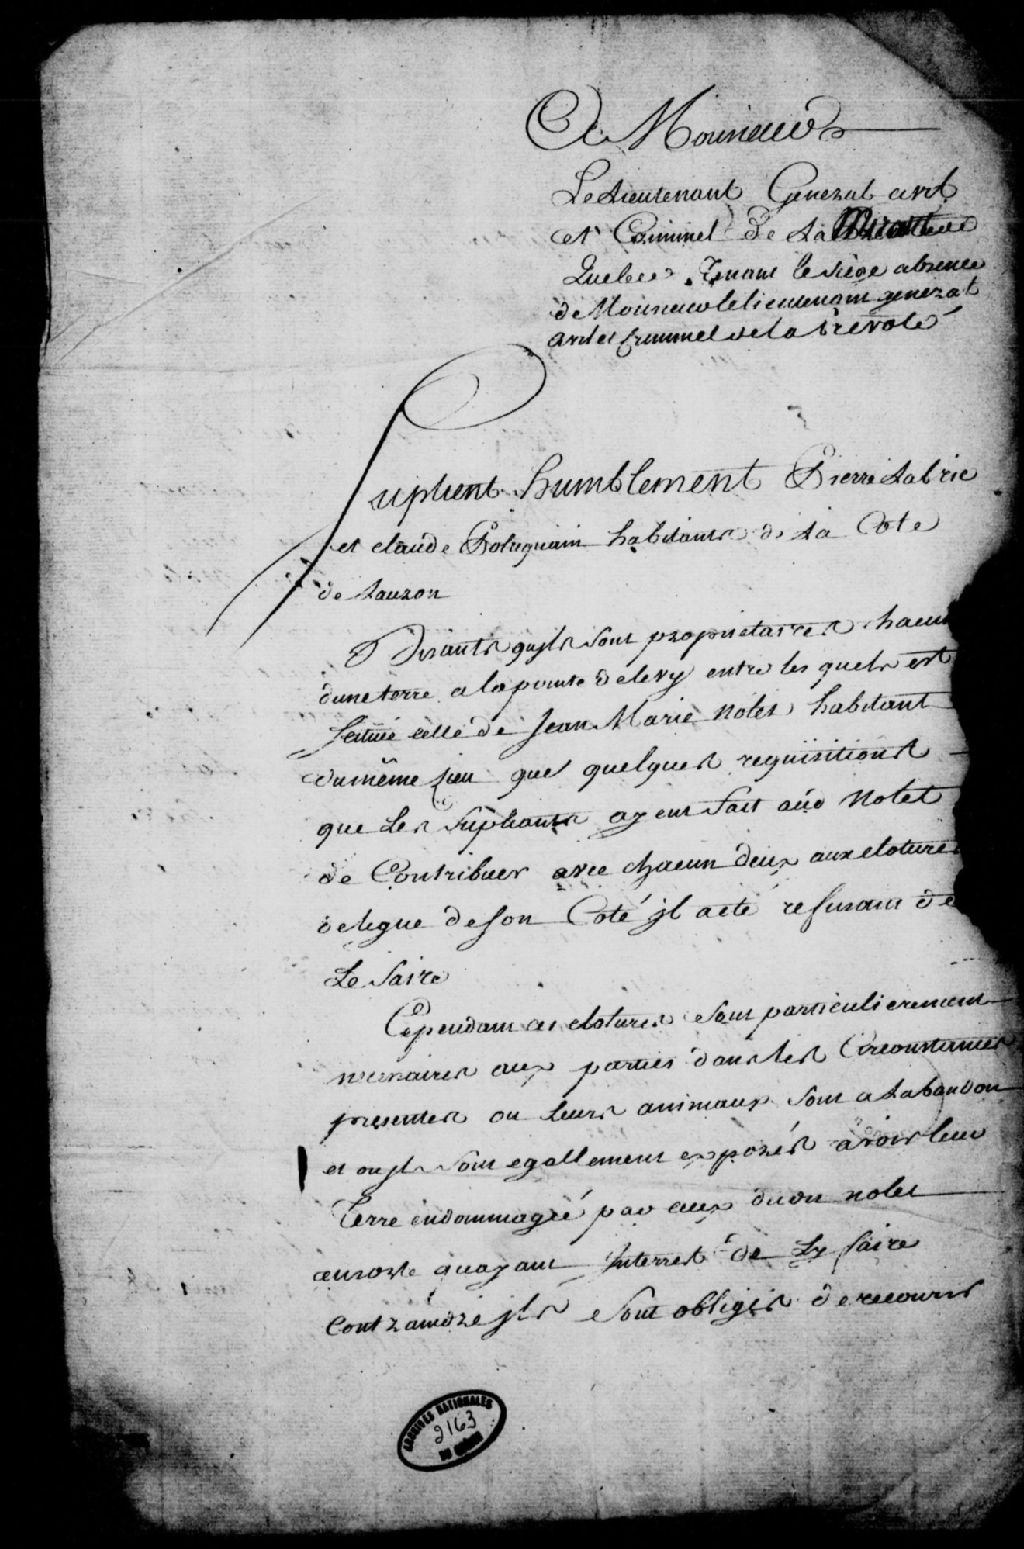 A Monsieur
Le Lieutenant General civil
et Criminel de La
Quebec Tenant le siege absence
de Monsieur le lieutenant general
civil et criminel de la prevoté
Suplient humblement Pierre Labrie
et claude Poliquain habitants de La Cote
de Lauzon
Disants qujls sont proprietaires chacun
dune terre a la pointe de levy entre les quels est
scituée celle de Jean Marie Nolet habitant
du même lieu que quelques requisitions
que Les supliants ayent fait aud Nolet
de Contribuer avec chacun deux aux clotures
de ligne de son Coté jl a eté refusant de
Le faire
Cependant ces clotures sont particulierement
necessaires aux parties dans les Circonstances
presentes ou leurs animaux sont a Labandon
et oujls sont egallement exposés a voir leur
Terre endommagée par ceux dudit nolet
en sorte quayant Interrest de Ly faire
contraindre jls sont obligés de recourir
ARCHIVES NATIONALES
2163
DU QUÉBEC